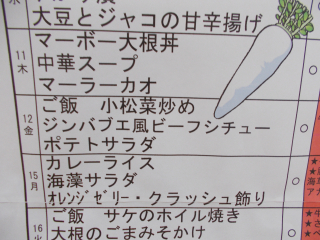 大豆とジャコの甘辛揚げ
11
木
マーボー大根丼
中華スープ
マーラーカオ
12
金
ご飯 小松菜炒め
ジンバブエ風ビーフシチュー
ポテトサラダ
15
月
カレーライス
海藻サラダ
オレンジゼリー・クラッシュ飾り
16
火
ご飯 サケのホイル焼き
大根のごまみそかけ